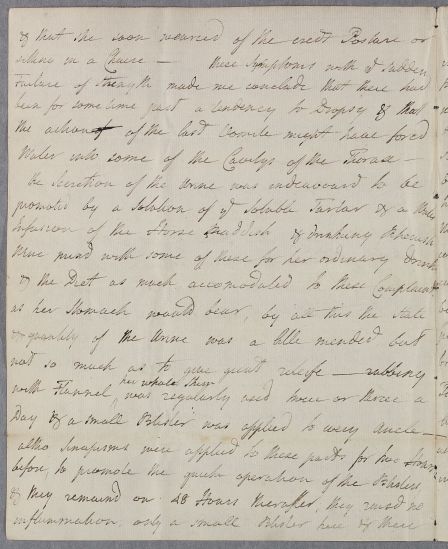 & that she soon wearied of the erect Posture or
sitting in a Chaire — these Symptoms with ye sudden
Failure of Strength made me conclude that there had
been for some time past a tendency to Dropsy & that
the action of the last Vomite might have forced
Water into some of the Cavitys of the Thorax —
the Secretion of the Urine was endeavoured to be
promoted by a Solution of ye Soluble Tartar & a
Infusion of the Horse Raddish & drinking Rhenish
Wine mixd with some of these for her ordinary drink
& the Diet as much accomodated to these Complaints
as her Stomach would bear, by all this the State
& quantity of the Urine was a litle mended but
not so much as to give great releife — rubbing
with Flannel her whole Body was regularly used twice or thrice a
Day & a small Blister was applied to every Ancle
altho Sinapisms were applied to these parts for two hours
before, to promote the quick operation of the Blisters
& they remaind on 48 Hours therafter, they raisd no
inflammation, only a small Blister here & there